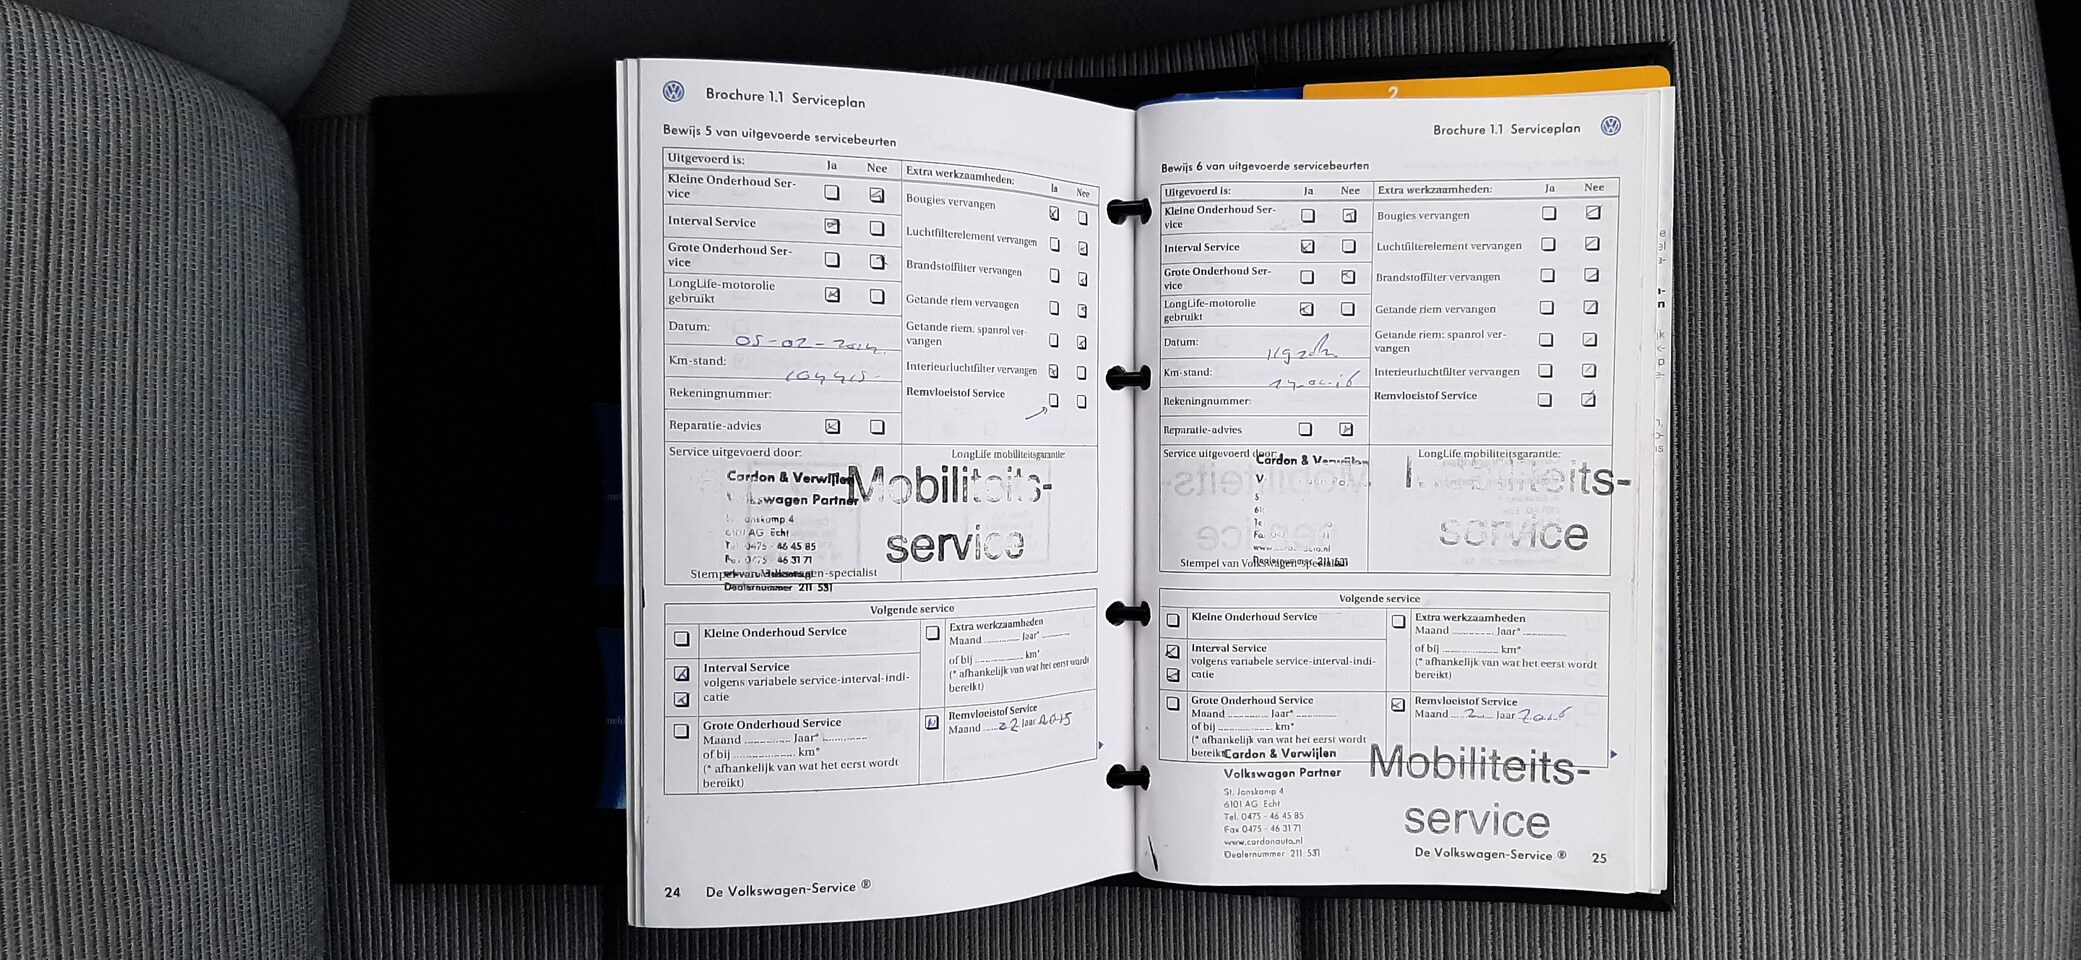 Brochure 1.1 Serviceplan
Bewijs 5 van uitgevoerde servicebeurten
Uitgevoerd is: Ja Nee
Kleine Onderhoud Ser-
vice
Interval Service
Grote Onderhoud Ser-
vice
LongLife-motorolie
gebruikt
Datum: 05-02-2014
Km-stand:
Rekeningnummer:
Reparatie-advies
Extra werkzaamheden: Ja Nee
Bougies vervangen
Luchtfilterelement vervangen
Brandstoffilter vervangen
Getande riem vervangen
Getande riem: spanrol ver-
vangen
Interieurluchtfilter vervangen
Remvloeistof Service
Service uitgevoerd door:
Cardon & Verwijlen
Volkswagen Partner
6101 AG Echt
0475 - 46 45 85
0475 - 46 31 71
Stempel van Volkswagen-specialist
Dealernummer 211 531
LongLife mobiliteitsgarantie:
Mobiliteits-
service
Volgende service
Kleine Onderhoud Service
Interval Service
volgens variabele service-interval-indi-
catie
Grote Onderhoud Service
Maand Jaar*
of bij km*
(* afhankelijk van wat het eerst wordt
bereikt)
Extra werkzaamheden
Maand Jaar*
of bij km*
(* afhankelijk van wat het eerst wordt
bereikt)
Remvloeistof Service
Maand 22 Jaar 2015
24 De Volkswagen-Service ®
2
Brochure 1.1 Serviceplan
Bewijs 6 van uitgevoerde servicebeurten
Uitgevoerd is: Ja Nee
Kleine Onderhoud Ser-
vice
Interval Service
Grote Onderhoud Ser-
vice
LongLife-motorolie
gebruikt
Datum:
Km-stand:
Rekeningnummer:
Reparatie-advies
Extra werkzaamheden: Ja Nee
Bougies vervangen
Luchtfilterelement vervangen
Brandstoffilter vervangen
Getande riem vervangen
Getande riem: spanrol ver-
vangen
Interieurluchtfilter vervangen
Remvloeistof Service
Service uitgevoerd door:
Cardon & Verwijlen
Stempel van Volkswagen-specialist
Dealernummer 211 531
LongLife mobiliteitsgarantie:
Mobiliteits-
service
Volgende service
Kleine Onderhoud Service
Interval Service
volgens variabele service-interval-indi-
catie
Grote Onderhoud Service
Maand Jaar*
of bij km*
(* afhankelijk van wat het eerst wordt
bereikt)
Extra werkzaamheden
Maand Jaar*
of bij km*
(* afhankelijk van wat het eerst wordt
bereikt)
Remvloeistof Service
Maand 2 Jaar 2016
Cardon & Verwijlen
Volkswagen Partner
St. Janskamp 4
6101 AG Echt
Tel. 0475 - 46 45 85
Fax 0475 - 46 31 71
www.cardonauto.nl
Dealernummer 211 531
Mobiliteits-
service
De Volkswagen-Service ® 25